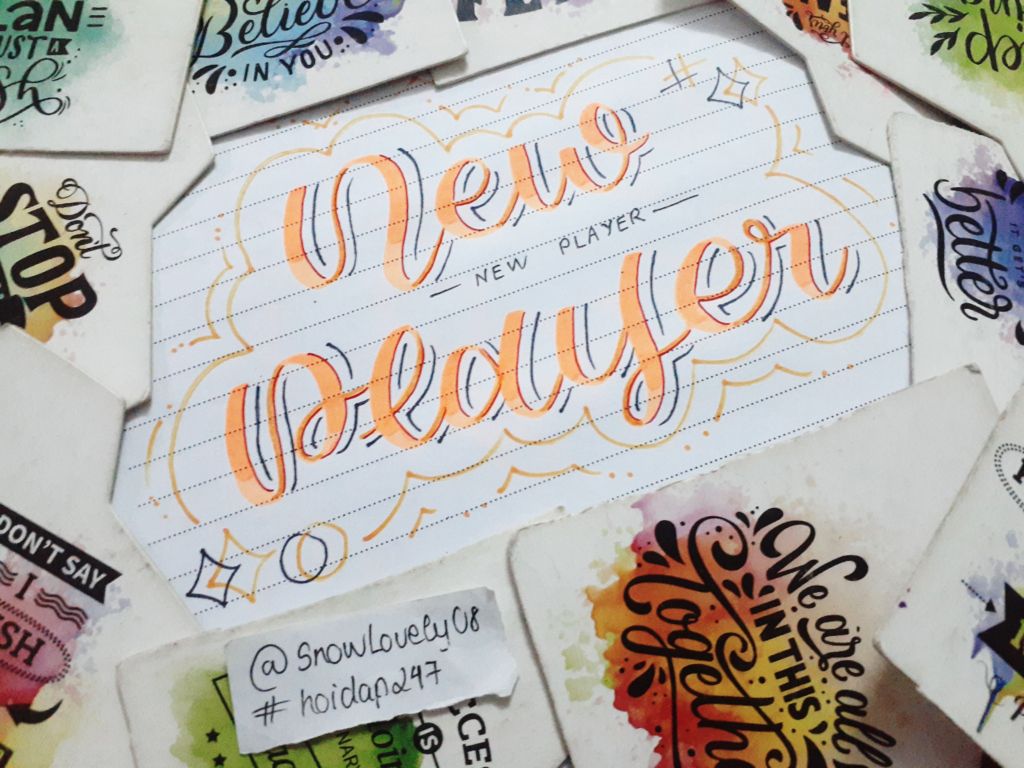 LAN
JUST
Believe
IN YOU
New
— NEW PLAYER —
Player
Don't
STOP
better
DON'T SAY
I
SH
@SnowLovely08
#hoidap247
We are all
IN THIS
Togeth
IS